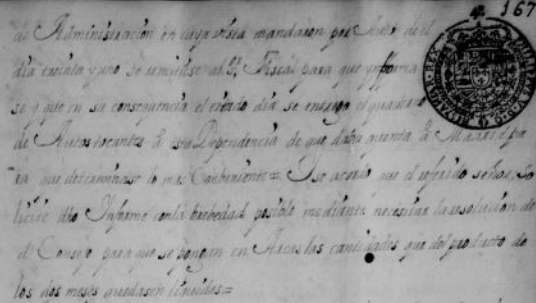 167
de Administracion en cuya vista mandaron por Auto de el
dia treinta y uno se remitiese al Sr. Fiscal para que ynforma
se y que en su consequencia el citado dia se entrego el quaderno
de Autos tocantes â esta Dependencia de que daba quenta â Madrid pa
ra que determinase lo mas Combeniente= Y se acordo que el referido señor, So
licite dho Informe con la brebedad posible mediante necesitar la resolucion de
el Consejo para que se pongan en Arcas las cantidades que del producto de
los dos meses quedasen liquides=